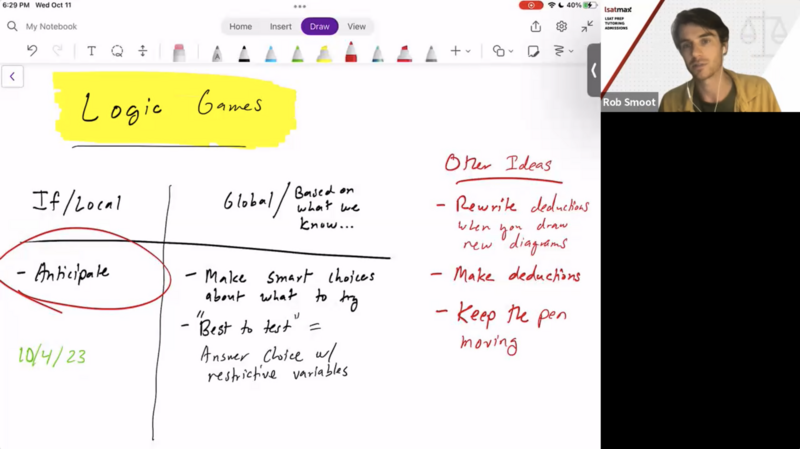 6:29 PM Wed Oct 11
40%
My Notebook
Home Insert Draw View
lsatmax
LSAT PREP
TUTORING
ADMISSIONS
Rob Smoot
Logic Games
If/Local
Global/ Based on
what we
know...
- Anticipate
- Make smart choices
about what to try
- "Best to test" =
Answer choice w/
restrictive variables
10/4/23
Other Ideas
- Rewrite deductions
when you draw
new diagrams
- Make deductions
- Keep the pen
moving